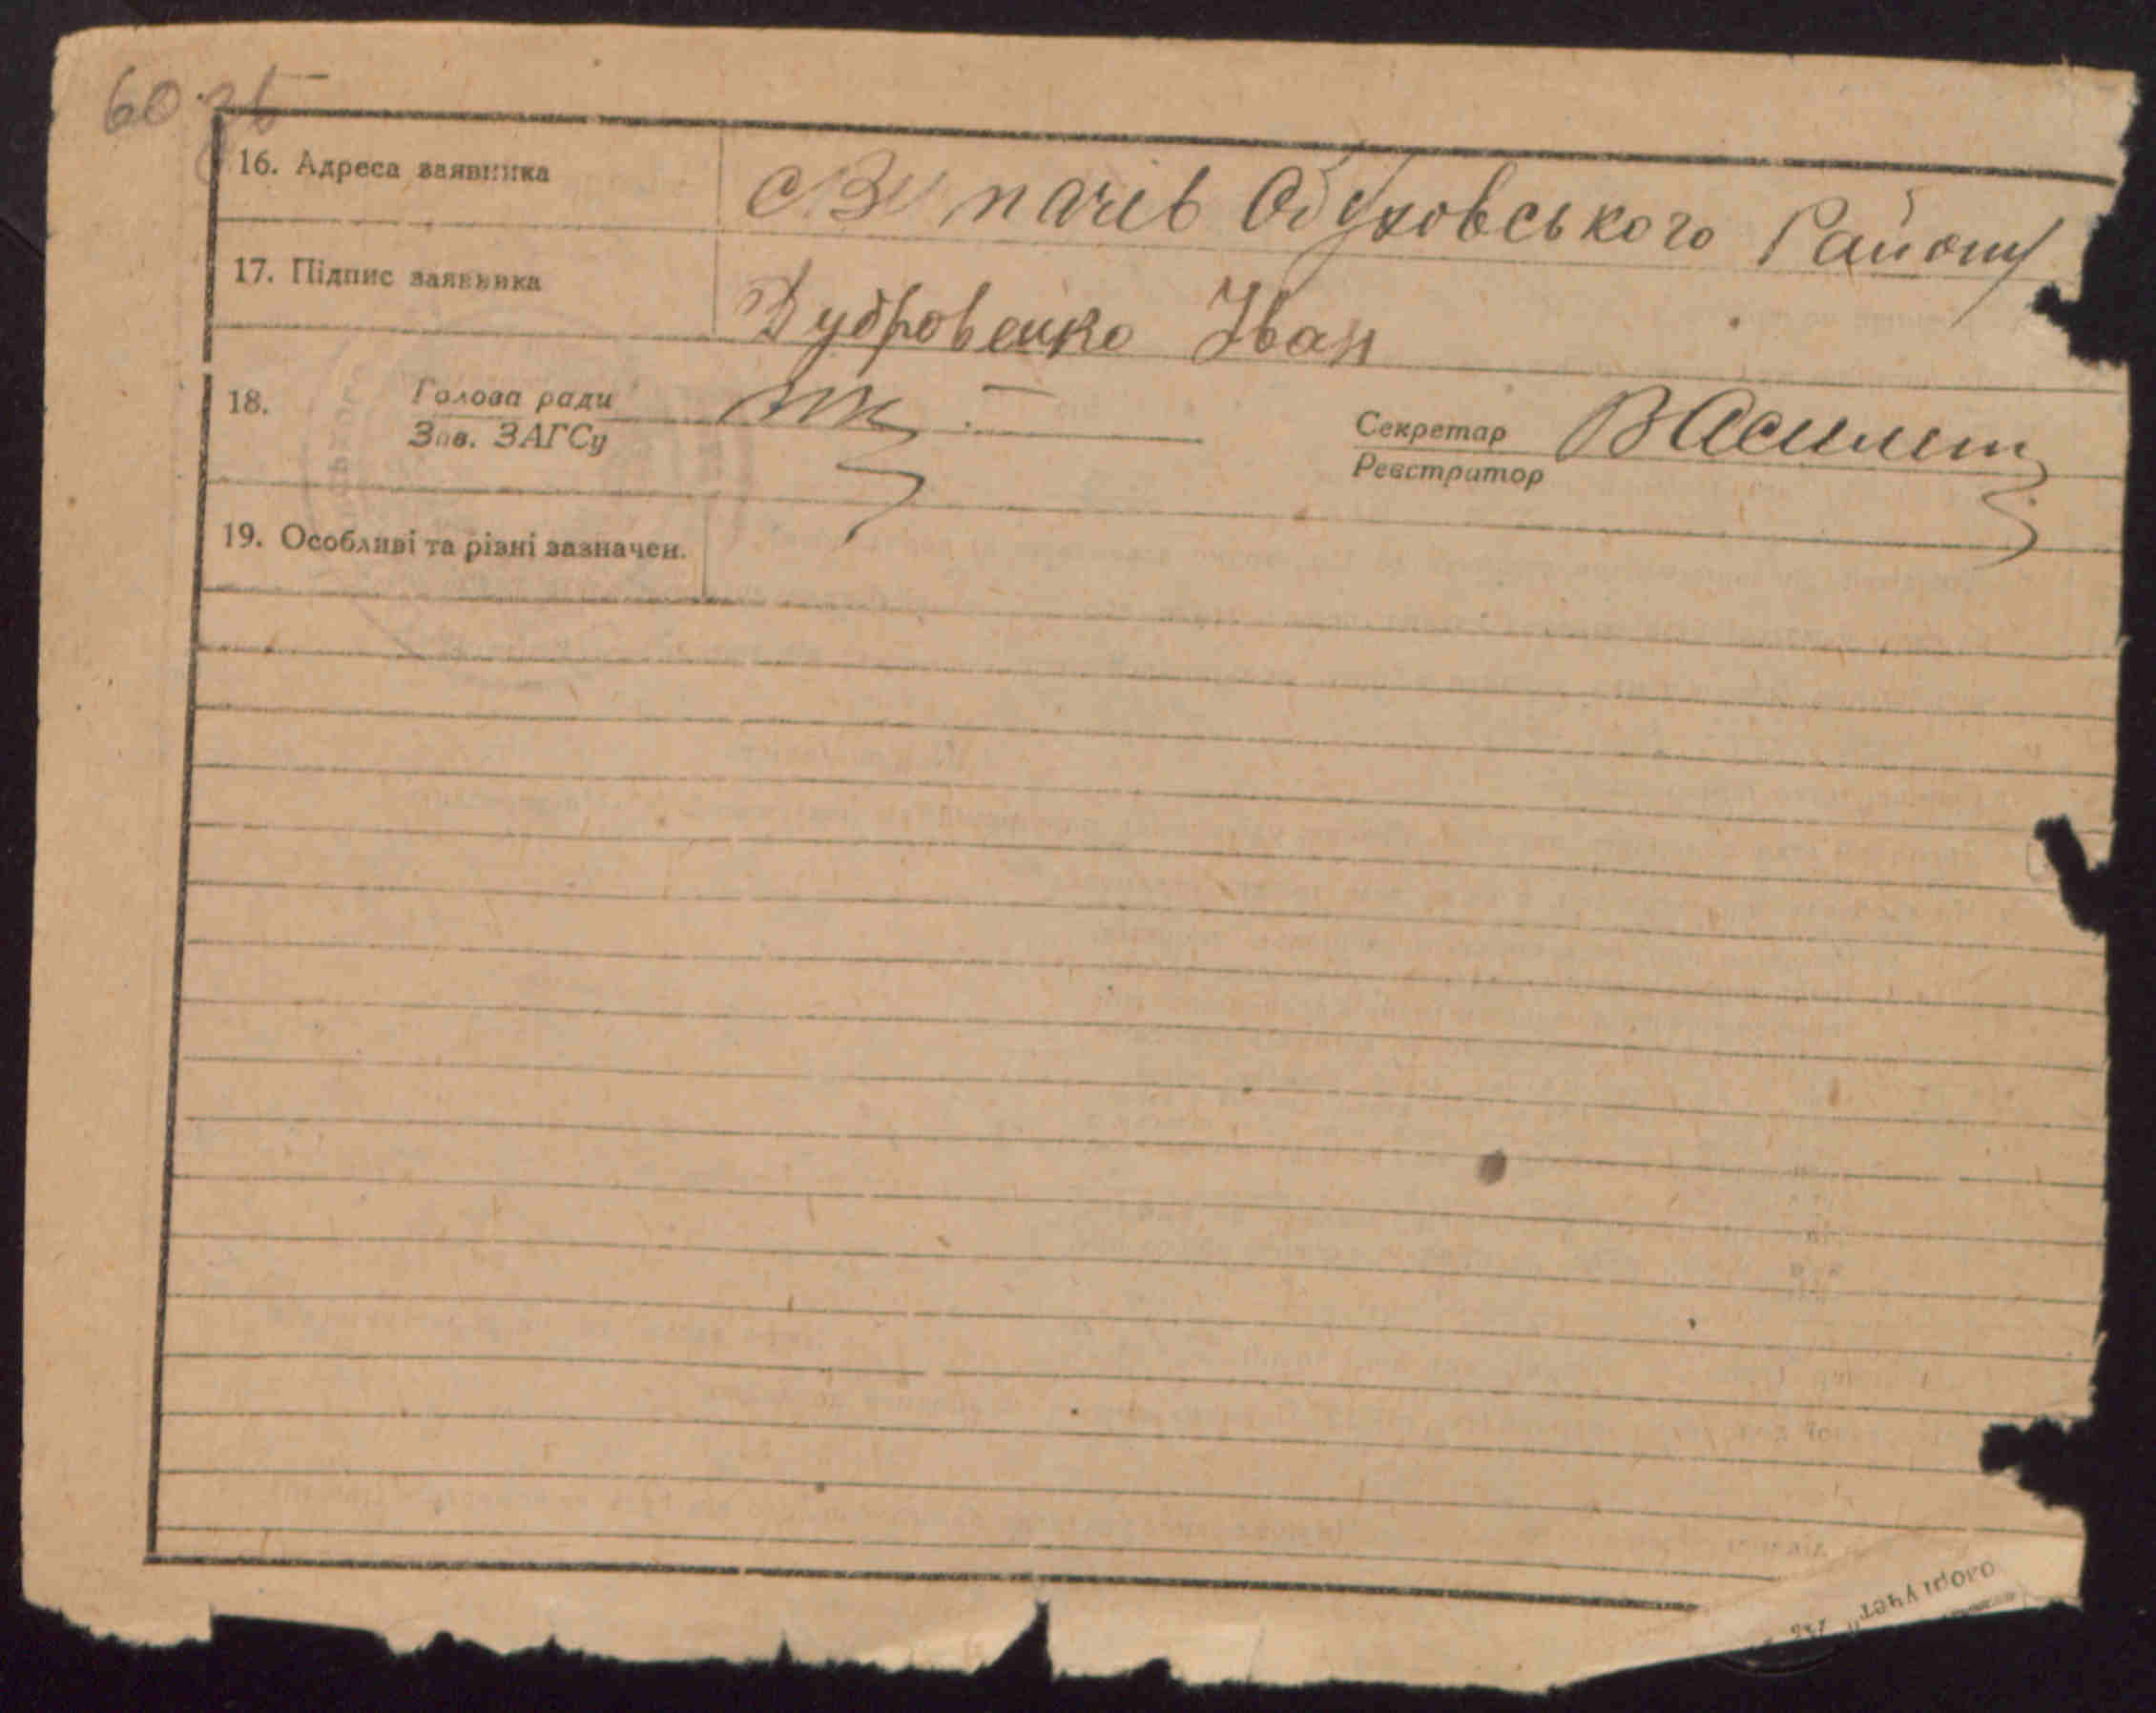 60 зв
16. Адреса заявника
с Витачів Обуховського Району
17. Підпис заявника
Дубровенко Іван
18. Голова ради
Зав. ЗАГСу
Секретар
Реєстратор
19. Особливі та різні зазначен.